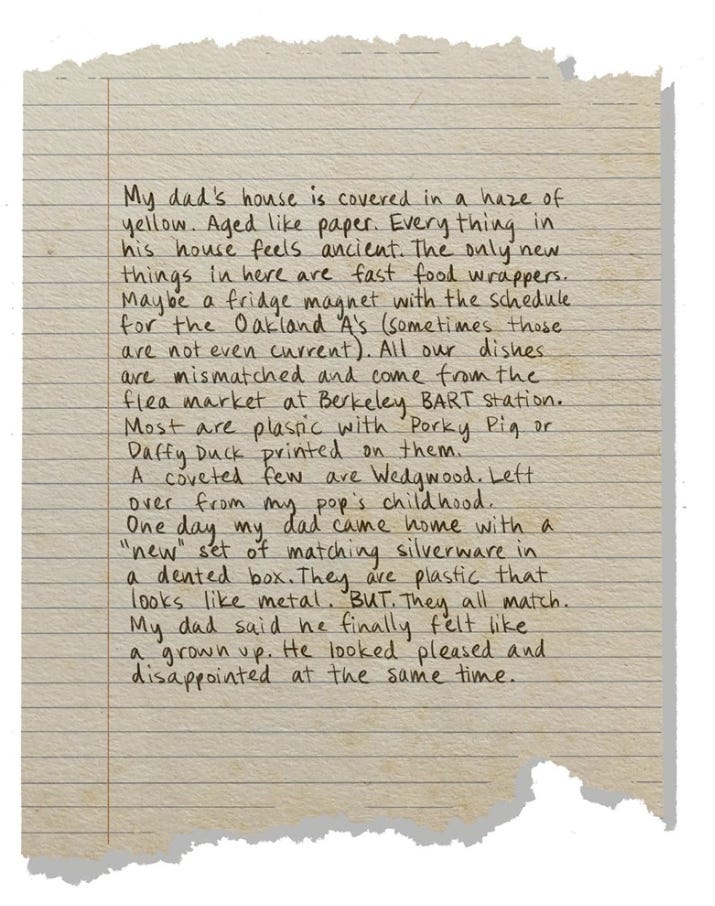 My dad's house is covered in a haze of
yellow. Aged like paper. Everything in
his house feels ancient. The only new
things in here are fast food wrappers.
Maybe a fridge magnet with the schedule
for the Oakland A's (sometimes those
are not even current). All our dishes
are mismatched and come from the
flea market at Berkeley BART station.
Most are plastic with Porky Pig or
Daffy Duck printed on them.
A coveted few are Wedgwood. Left
over from my pop's childhood.
One day my dad came home with a
"new" set of matching silverware in
a dented box. They are plastic that
looks like metal. BUT. They all match.
My dad said he finally felt like
a grown up. He looked pleased and
disappointed at the same time.